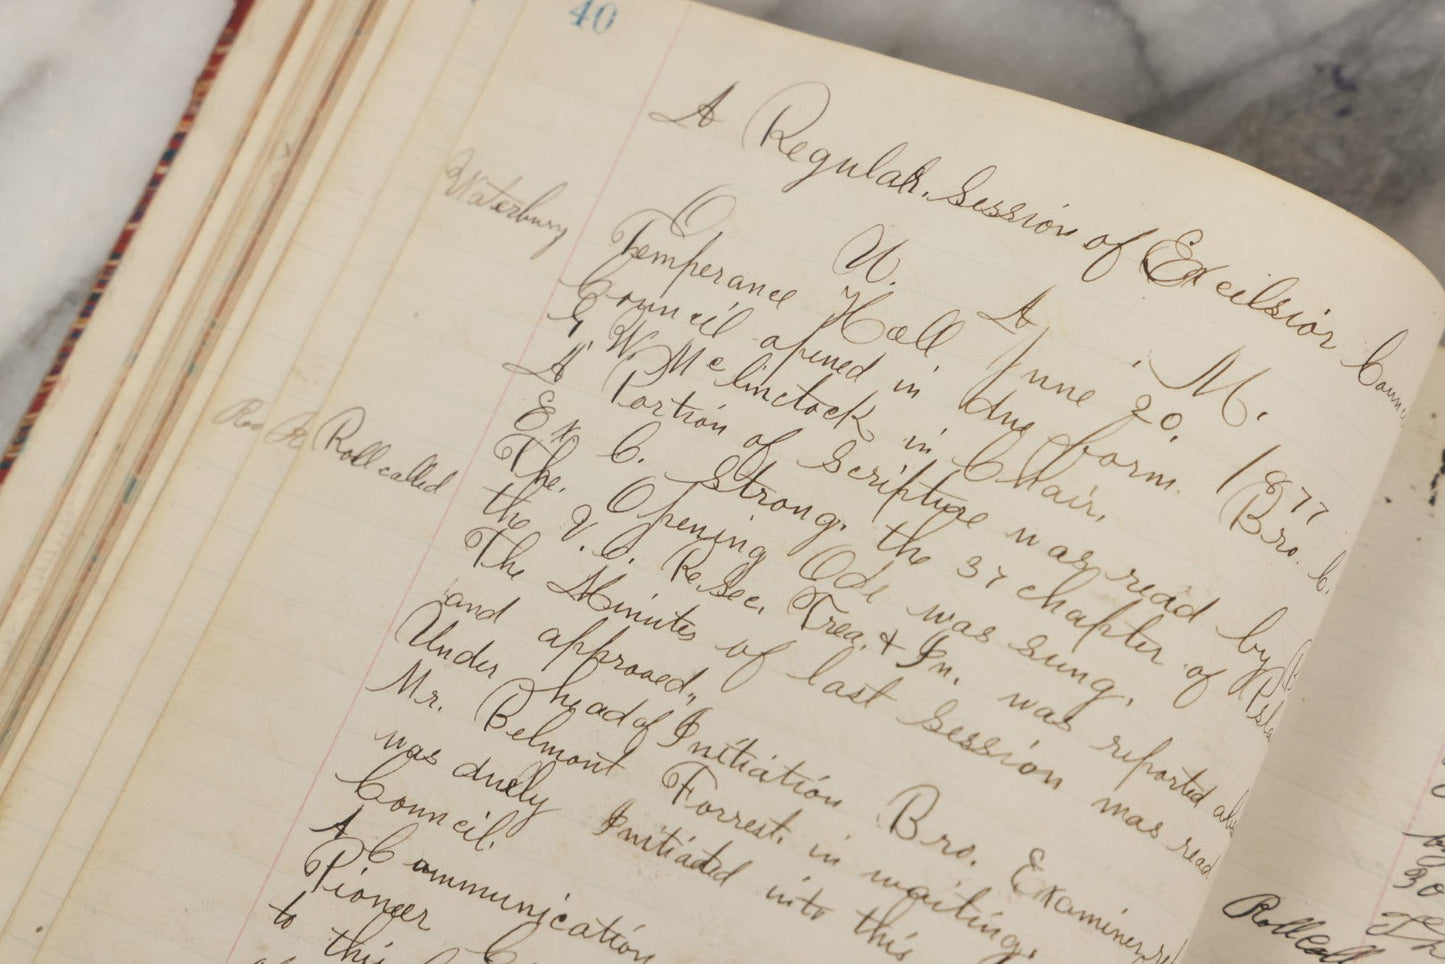 40
A Regular. Session of Excilsior Counc
O. U. A. M.
Waterbury
Temperance Hall June 20. 1877
Council opened in due form. Bro. C.
G W. McClinctock in Chair,
A Portion of Scripture was read by B
Ex C. Strong. the 37 chapter of Psla
The. Opening Ode was sung.
Roll called
the V. C. Re. Sec. Trea. & In. was reported abs
The Minutes of last Session was read
and approved,,
Under head of Initiation Bro. Examiner re
Mr. Belmont Forrest. in waiting.
was duely Initiated into this
Council.
A Communication
Pioneer C
to this
30
Th
Roll Call